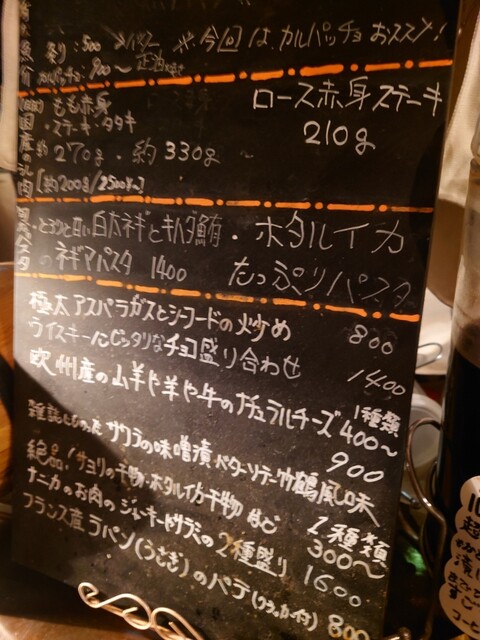 炙り:500
※今回はカルパッチョおススメ!
カルパッチョ:900〜
もも赤身
・ステーキ・タタキ
ロース赤身ステーキ
210g
約270g・約330g
[約200g/2500〜]
・とろりと甘い白太ネギとキハダ鮪
のネギアパスタ 1400
・ホタルイカ
たっぷりパスタ
極太アスパラガスとシーフードの炒め 800
ウイスキーにピッタリなチョコ盛り合わせ 1400
欧州産の山羊や羊や牛のナチュラルチーズ 1種類 400〜
サクラの味噌漬バターソテー竹鶴風味 900
絶品!サヨリの干物・ホタルイカ干物 など 1種類 300〜
のお肉のジャーキードサラミの2種盛り 1600
フランス産ラパン(うさぎ)のパテ(クラッカー付) 800